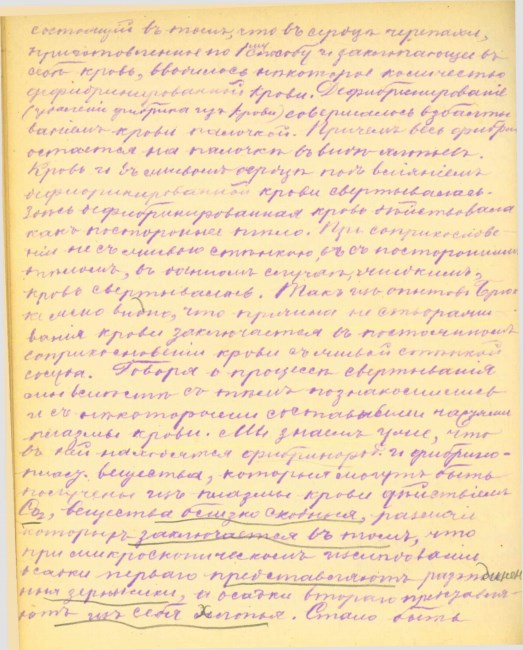 состоящій въ томъ, что въ сердце черепахи,
приготовленное по 1му способу и заключающее въ
себѣ кровь, вводилось нѣкоторое количество
дефибринированной крови. Дефибринированіе
(удаленіе фибрина изъ крови) совершалось взбалты
ваніемъ крови палочкой. Причемъ весь фибринъ
остается на палочкѣ въ видѣ
Кровь и въ живомъ сердцѣ подъ вліяніемъ
дефибринированной крови свертывалась.
Здѣсь дефибринированная кровь дѣйствовала
какъ постороннее тѣло. При соприкоснове-
ніи не съ живою стѣнкою, а съ постороннимъ
тѣломъ, въ данномъ случаѣ жидкимъ,
кровь свертывалась. Такъ изъ опытовъ Брюк
ке ясно видно, что причина не створажи-
ванія крови заключается въ постоянномъ
соприкосновеніи крови съ живой стѣнкой
сосуда. Говоря о процессѣ свертыванія
мы вмѣстѣ съ тѣмъ познакомились
и съ нѣкоторыми составными частями
плазмы крови. Мы знаемъ уже, что
въ ней находятся фибриноген. и фибрино-
пласт. вещества, которыя могутъ быть
получены изъ плазмы крови дѣйствіемъ
Co₂, вещества близко сходныя, различіе
которыхъ заключается въ томъ, что
при микроскопическомъ изслѣдованіи
осадки перваго представляютъ разъединен
ныя зернышки, а осадки втораго представля-
ютъ изъ себя хлопья. Стало быть